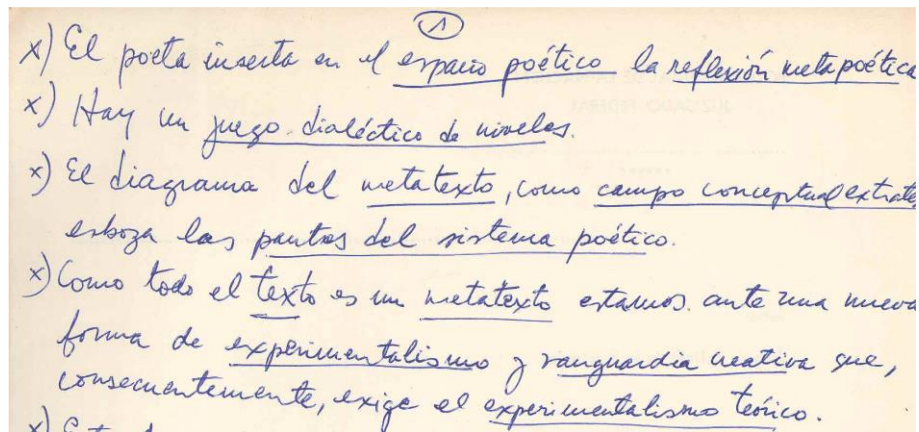 1
x) El poeta inserta en el espacio poético la reflexión metapoética
x) Hay un juego dialéctico de niveles.
x) El diagrama del metatexto, como campo conceptual extrate
esboza las pautas del sistema poético.
x) Como todo el texto es un metatexto estamos ante una nueva
forma de experimentalismo y vanguardia creativa que,
consecuentemente, exige el experimentalismo teórico.
x)